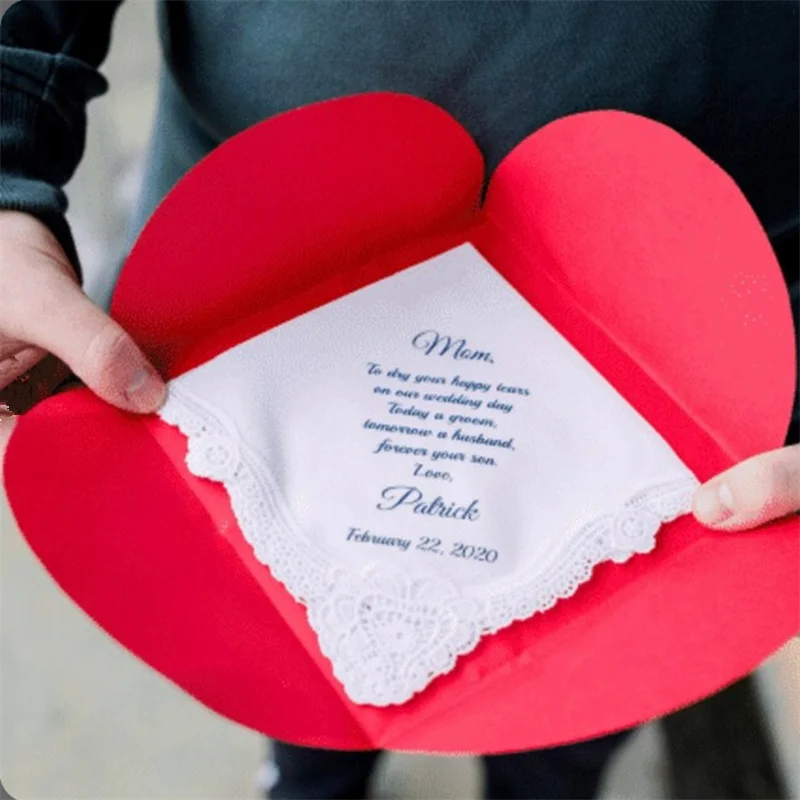 Mom,
To dry your happy tears
on our wedding day
Today a groom,
tomorrow a husband,
forever your son.
Love,
Patrick
February 22, 2020